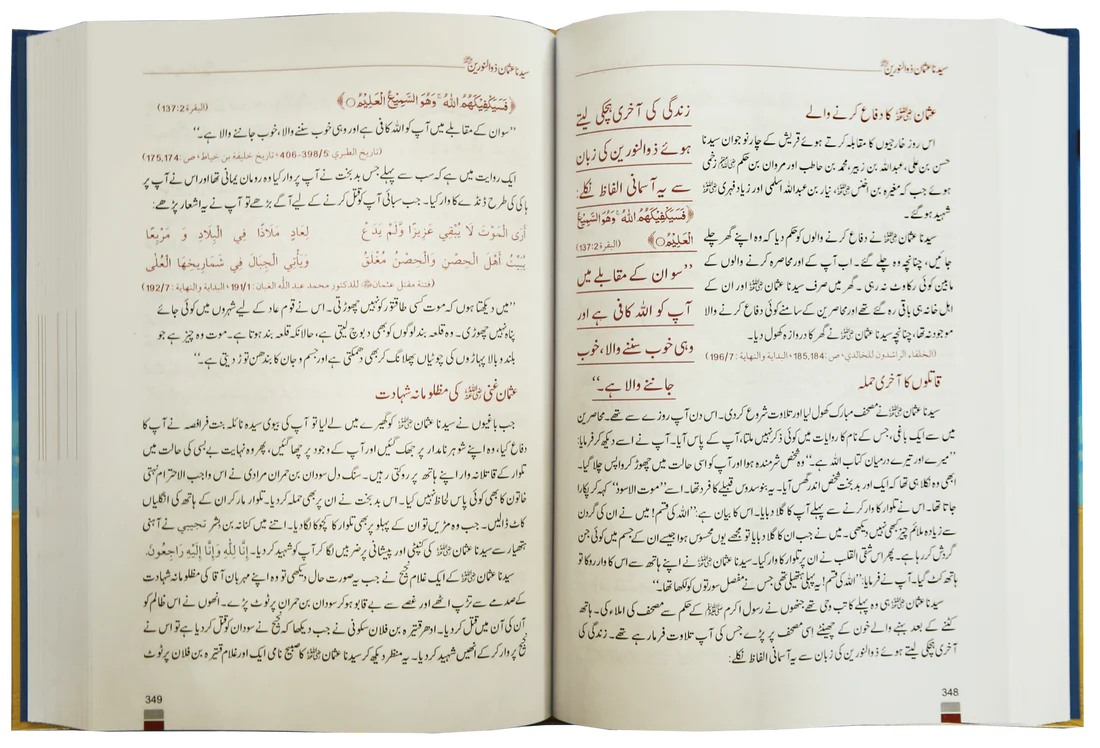 سیدنا عثمان ذوالنورین رضی اللہ عنہ
عثمان رضی اللہ عنہ کا دفاع کرنے والے
اس روز خارجیوں کا مقابلہ کرتے ہوئے قریش کے چار نوجوان سیدنا
حسن بن علی، عبداللہ بن زبیر، محمد بن حاطب اور مروان بن حکم رضی اللہ عنہم زخمی
ہوئے جب کہ مغیرہ بن اخنس رضی اللہ عنہ، نیار بن عبداللہ اسلمی اور زیاد فہری رضی اللہ عنہم
شہید ہو گئے۔
سیدنا عثمان رضی اللہ عنہ نے دفاع کرنے والوں کو حکم دیا کہ وہ اپنے گھر چلے
جائیں، چنانچہ وہ چلے گئے۔ اب آپ کے اور محاصرہ کرنے والوں کے
مابین کوئی رکاوٹ نہ رہی۔ گھر میں صرف سیدنا عثمان رضی اللہ عنہ اور ان کے
اہل خانہ ہی باقی رہ گئے تھے اور محاصرین کے سامنے کوئی دفاع کرنے والا
موجود نہ تھا، چنانچہ سیدنا عثمان رضی اللہ عنہ نے گھر کا دروازہ کھول دیا۔
(الخلفاء الراشدون للخالدي، ص: 185,184، البداية والنهاية: 196/7)
زندگی کی آخری ہچکی لیتے
ہوئے ذوالنورین کی زبان
سے یہ آسمانی الفاظ نکلے:
﴿فَسَيَكْفِيكَهُمُ اللهُ ۚ وَهُوَ السَّمِيعُ
الْعَلِيمُ﴾ (البقرة 137:2)
’’سو ان کے مقابلے میں
آپ کو اللہ کافی ہے اور
وہی خوب سننے والا، خوب
جاننے والا ہے۔‘‘
قاتلوں کا آخری حملہ
سیدنا عثمان رضی اللہ عنہ نے مصحف مبارک کھول لیا اور تلاوت شروع کر دی۔ اس دن آپ روزے سے تھے۔ محاصرین
میں سے ایک باغی، جس کے نام کا روایات میں کوئی ذکر نہیں ملتا، آپ کے پاس آیا۔ آپ نے اسے دیکھ کر فرمایا:
’’میرے اور تیرے درمیان کتاب اللہ ہے۔‘‘ وہ شخص شرمندہ ہوا اور آپ کو اسی حالت میں چھوڑ کر واپس چلا گیا۔
ابھی وہ نکلا ہی تھا کہ ایک اور بدبخت شخص اندر گھس آیا۔ یہ بنو سدوس قبیلے کا فرد تھا۔ اسے ’’موت الاسود‘‘ کہہ کر پکارا
جاتا تھا۔ اس نے تلوار کا وار کرنے سے پہلے آپ کا گلا دبایا۔ اس کا بیان ہے: ’’اللہ کی قسم! میں نے ان کی گردن
سے زیادہ ملائم چیز کبھی نہیں دیکھی۔ میں نے جب ان کا گلا دبایا تو مجھے یوں محسوس ہوا جیسے ان کے جسم میں کوئی جن
گردش کر رہا ہے۔ پھر اس شقی القلب نے ان پر تلوار کا وار کیا۔ سیدنا عثمان رضی اللہ عنہ نے اپنے ہاتھ سے اس کا وار روکا تو
ہاتھ کٹ گیا۔ آپ نے فرمایا: ’’اللہ کی قسم! یہ پہلی ہتھیلی تھی جس نے مفصل سورتوں کو لکھا تھا۔‘‘
سیدنا عثمان رضی اللہ عنہ ہی وہ پہلے کاتب وحی تھے جنھوں نے رسول اکرم صلی اللہ علیہ وسلم کے حکم سے مصحف کی املاء کی۔ ہاتھ
کٹنے کے بعد بہنے والے خون کے چھینٹے اسی مصحف پر پڑے جس کی آپ تلاوت فرما رہے تھے۔ زندگی کی
آخری ہچکی لیتے ہوئے ذوالنورین کی زبان سے یہ آسمانی الفاظ نکلے:
348
سیدنا عثمان ذوالنورین رضی اللہ عنہ
﴿فَسَيَكْفِيكَهُمُ اللهُ ۚ وَهُوَ السَّمِيعُ الْعَلِيمُ﴾ (البقرة 137:2)
’’سو ان کے مقابلے میں آپ کو اللہ کافی ہے اور وہی خوب سننے والا، خوب جاننے والا ہے۔‘‘
(تاريخ الطبري: 398/5-406، تاريخ خليفة بن خياط، ص: 175,174)
ایک روایت میں ہے کہ سب سے پہلے جس بدبخت نے آپ پر وار کیا وہ رومان یمانی تھا اور اس نے آپ پر
ہاکی کی طرح ڈنڈے کا وار کیا۔ جب سبائی آپ کو قتل کرنے کے لیے آگے بڑھے تو آپ نے یہ اشعار پڑھے:
أَرَى الْمَوْتَ لَا يُبْقِي عَزِيزًا وَّلَمْ يَدَعْ لِعَادٍ مَلَاذًا فِي الْبِلَادِ وَ مَرْبَعًا
يُبَيِّتُ أَهْلَ الْحِصْنِ وَالْحِصْنُ مُغْلَقٌ وَيَأْتِي الْجِبَالَ فِي شَمَارِيخِهَا الْعُلَى
(فتنة مقتل عثمان رضی اللہ عنہ للدكتور محمد عبد الله الغبان: 191/1، البداية والنهاية: 192/7)
’’میں دیکھتا ہوں کہ موت کسی طاقتور کو نہیں چھوڑتی۔ اس نے قوم عاد کے لیے شہروں میں کوئی جائے
پناہ نہیں چھوڑی۔ وہ قلعہ بند لوگوں کو بھی دبوچ لیتی ہے، حالانکہ قلعہ بند ہوتا ہے۔ موت وہ چیز ہے جو
بلند و بالا پہاڑوں کی چوٹیاں پھلانگ کر بھی آ دھمکتی ہے اور جسم و جان کا بندھن توڑ دیتی ہے۔‘‘
عثمان غنی رضی اللہ عنہ کی مظلومانہ شہادت
جب باغیوں نے سیدنا عثمان رضی اللہ عنہ کو گھیرے میں لے لیا تو آپ کی بیوی سیدہ نائلہ بنت فرافصہ نے آپ کا
دفاع کیا، وہ اپنے شوہر نامدار پر جھک گئیں اور آپ کے وجود پر چھا گئیں، پھر وہ نہایت بے بسی کی حالت میں
تلوار کے قاتلانہ وار اپنے ہاتھ پر روکتی رہیں۔ سنگ دل سودان بن حمران مرادی نے اس واجب الاحترام نہتی
خاتون کا بھی کوئی پاس لحاظ نہیں کیا۔ اس بدبخت نے ان پر بھی حملہ کر دیا۔ تلوار مار کر ان کے ہاتھ کی انگلیاں
کاٹ ڈالیں۔ جب وہ مڑیں تو ان کے پہلو پر بھی تلوار کا کچوکا لگا دیا۔ اتنے میں کنانہ بن بشر تجیبی نے آہنی
ہتھیار سے سیدنا عثمان رضی اللہ عنہ کی کنپٹی اور پیشانی پر ضربیں لگا کر آپ کو شہید کر دیا۔ إِنَّا لِلّٰهِ وَإِنَّا إِلَيْهِ رَاجِعُونَ.
سیدنا عثمان رضی اللہ عنہ کے ایک غلام نجیح نے جب یہ صورت حال دیکھی تو وہ اپنے مہربان آقا کی مظلومانہ شہادت
کے صدمے سے تڑپ اٹھے اور غصے سے بے قابو ہو کر سودان بن حمران پر ٹوٹ پڑے۔ انھوں نے اس ظالم کو
آن کی آن میں قتل کر دیا۔ ادھر قتیرہ بن فلان سکونی نے جب دیکھا کہ نجیح نے سودان کو قتل کر دیا ہے تو اس نے
نجیح پر وار کر کے انھیں شہید کر دیا۔ یہ منظر دیکھ کر سیدنا عثمان رضی اللہ عنہ کا صبیح نامی ایک اور غلام قتیرہ بن فلان پر ٹوٹ
349